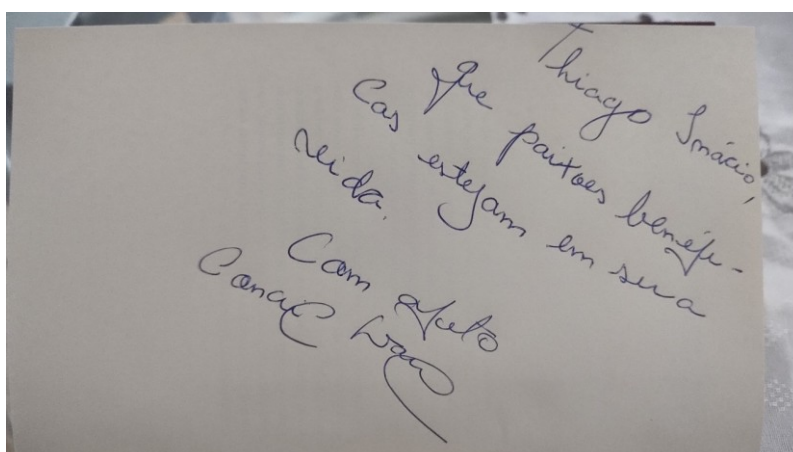 Thiago Inácio,
que paixões benéfi-
cas estejam em sua
vida.
Com afeto